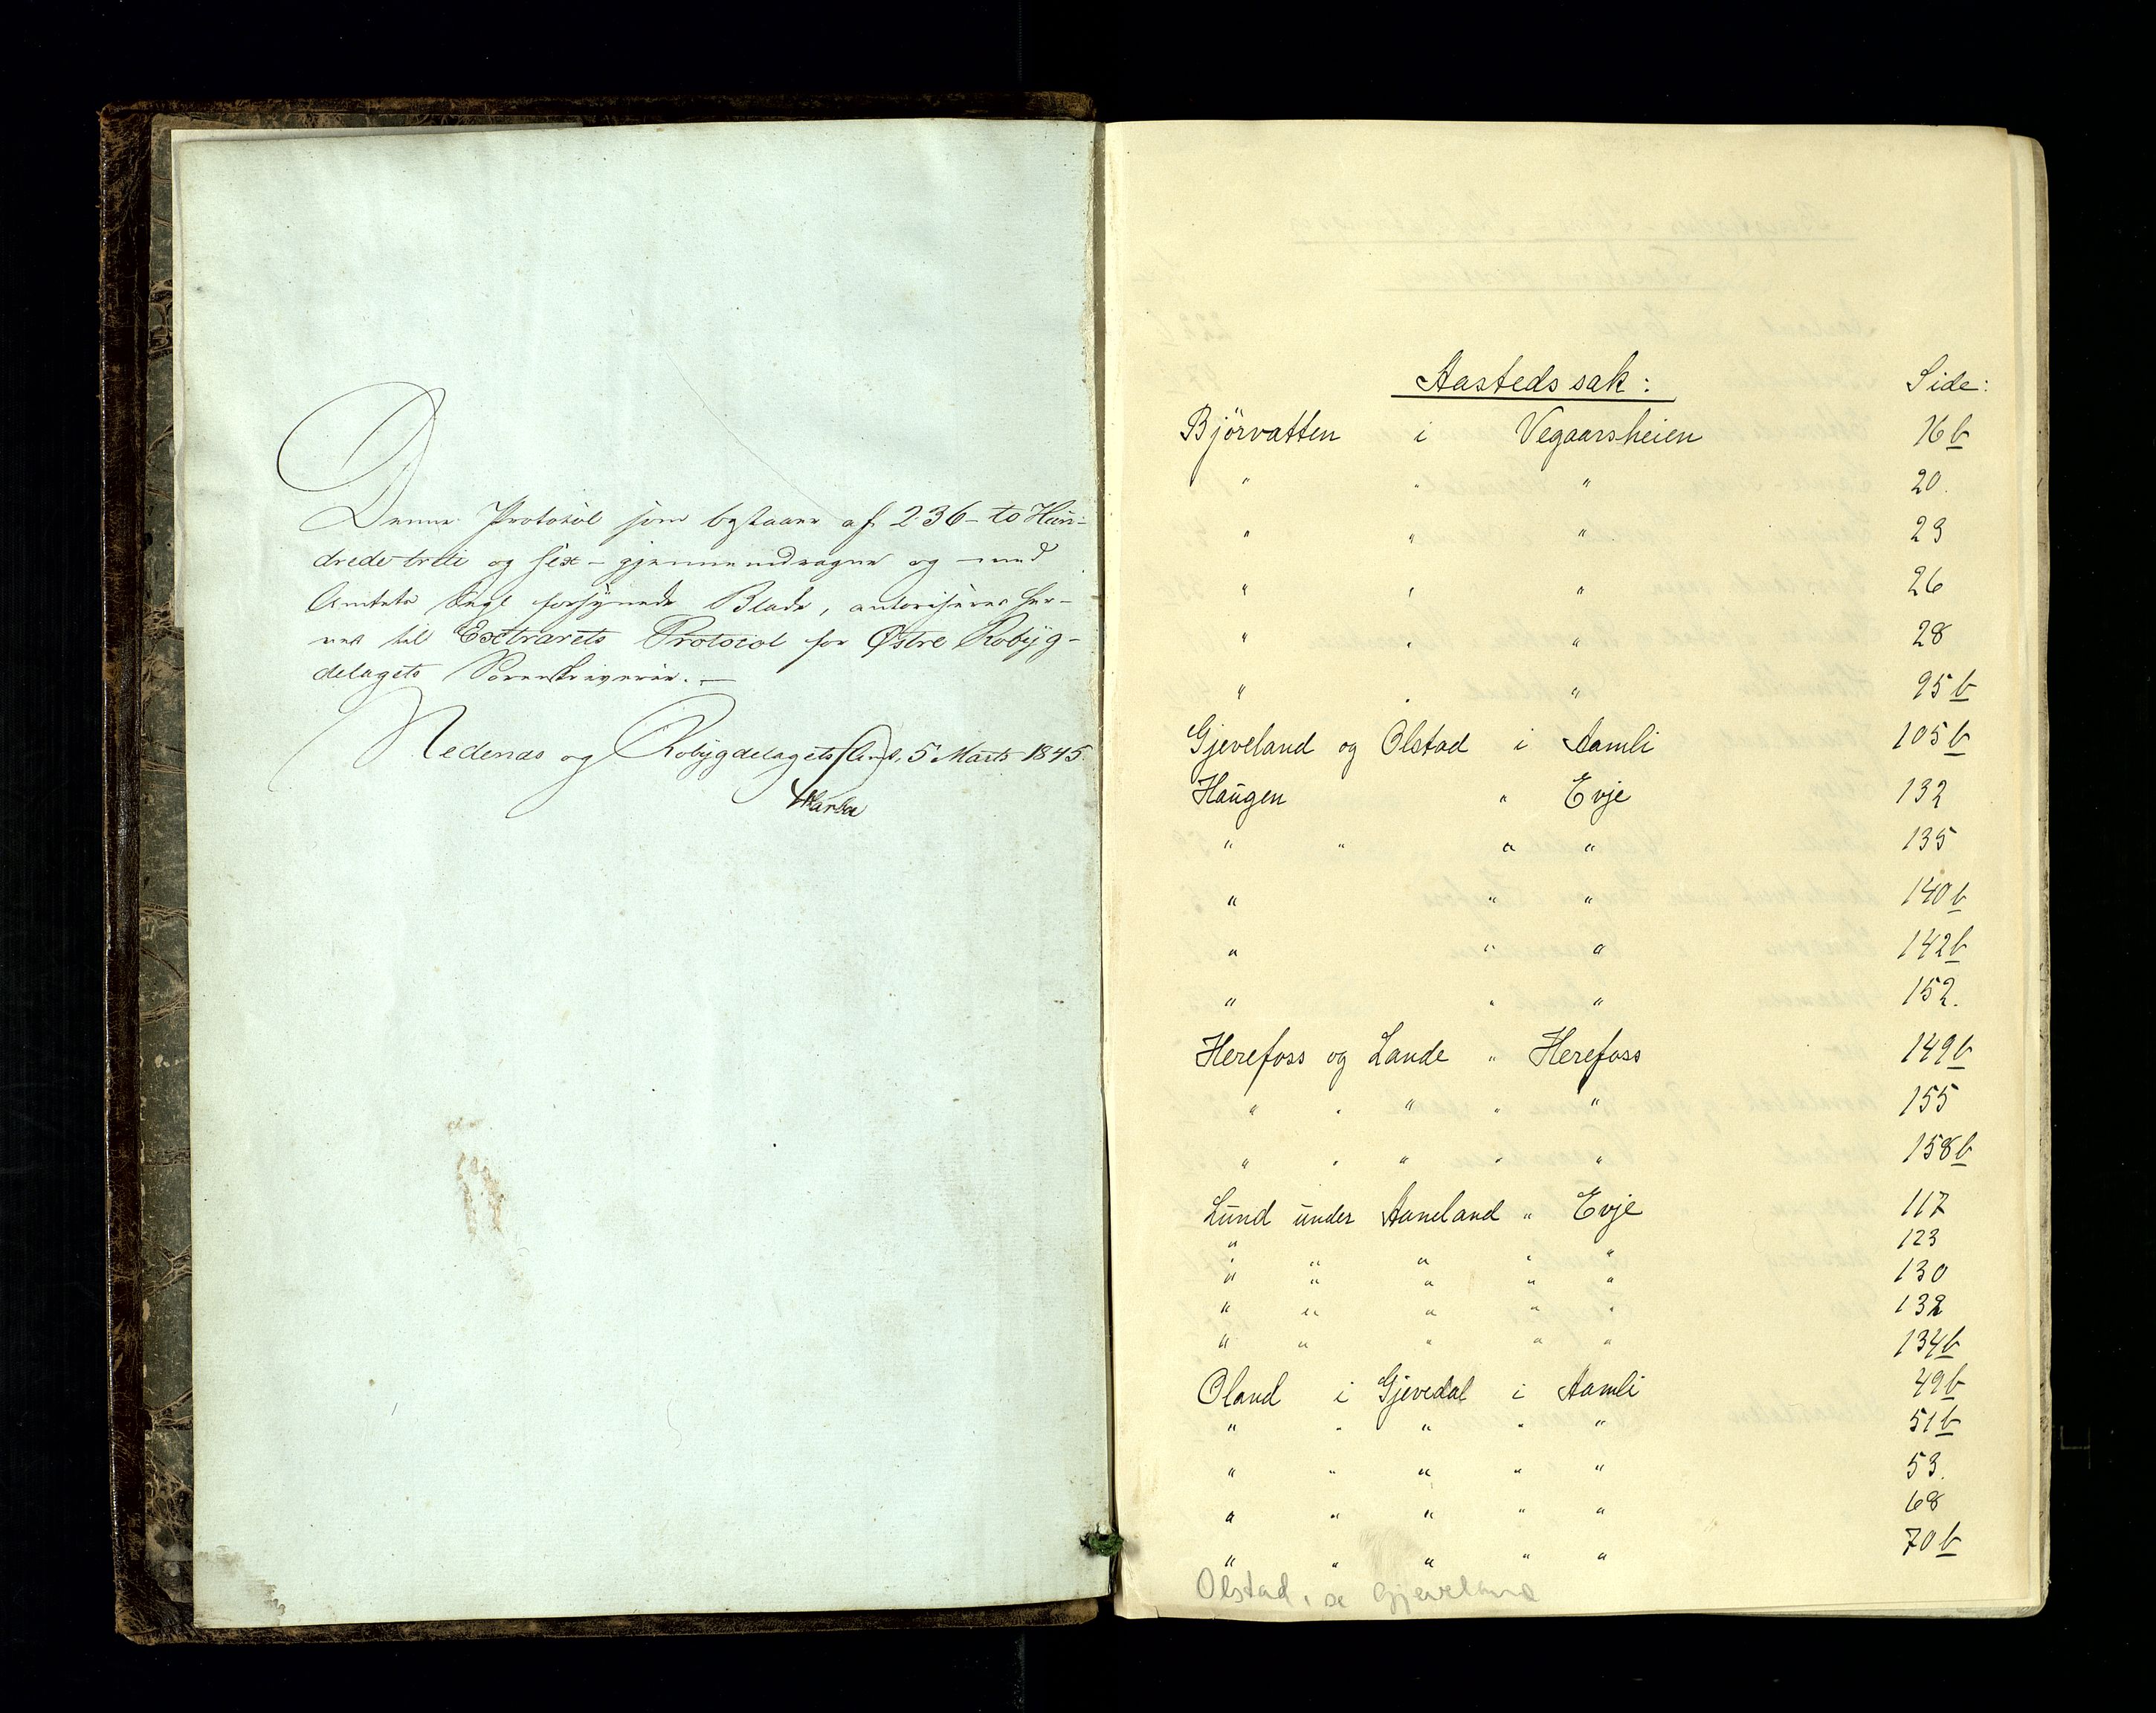 Denne Protokol som bestaaer af 236 – to Hun-
drede treti og sex – gjennemdragne og med
Amtets Segl forsynede Blade, autoriseres her-
ved til Extrarets Protocol for Østre Robÿg-
delagets Sorenskriverie. —
Nedenæs og Robÿgdelagets Amt, 5 Marts 1845.
Aastedssak: Side:
Björvatten i Vegaarsheien 16b
" " " 20.
" " " 23
" " " 26
" " " 28
" " " 95b
Gjeveland og Olstad i Aamli 105b
Haugen " Evje 132
" " " " 135
" " " 140b
" " " 142b
" " " 152.
Herefoss og Lande " Herefoss 149b
" " " " " 155
" " " " " 158b
Lund under Aaneland " Evje 117
" " " " " 123
" " " " " 130
" " " " " 132
" " " " " 134b
Oland i Gjevedal i Aamli 49b
" " " " " 51b
" " " " " 53.
" " " " " 68
" " " " " 70b
Olstad, se Gjeveland